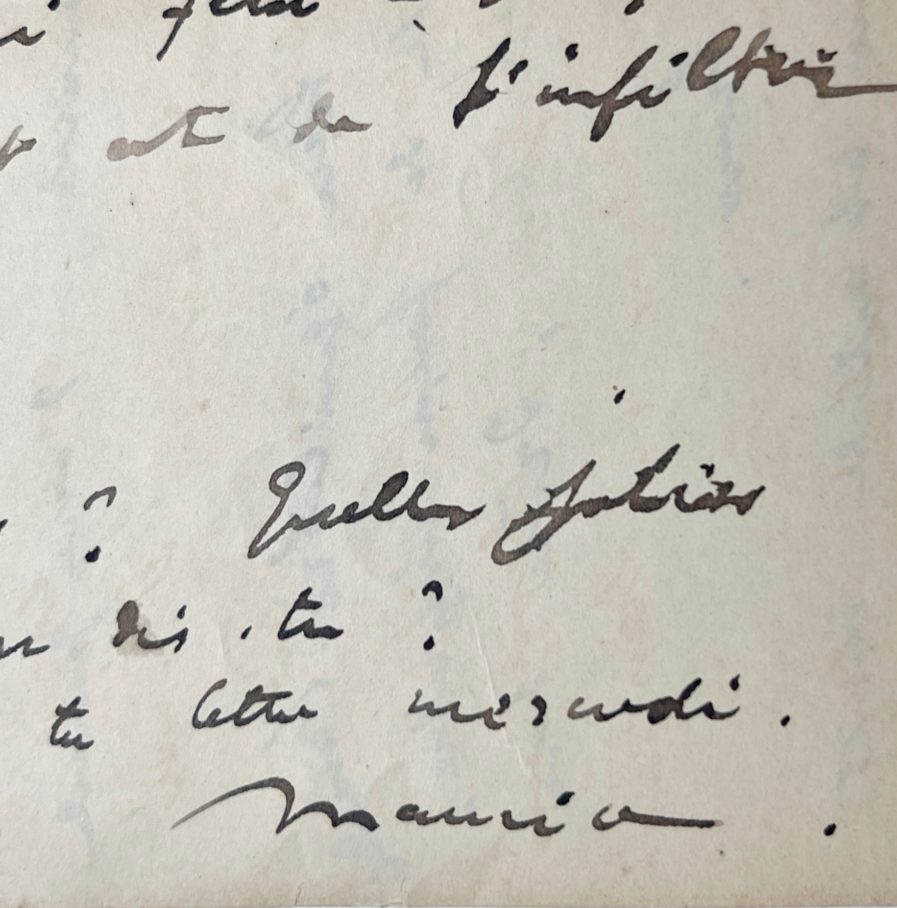 est de s'infiltrer
? Quelles folies
dis-tu ?
ta lettre mercredi.
Maurice.